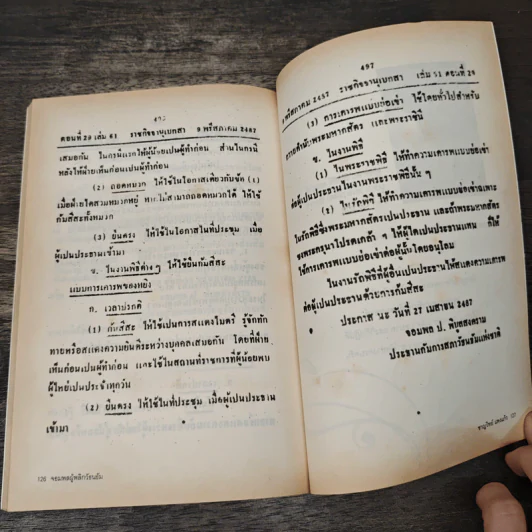 ตอนที่ 29 เล่ม 61 ราชกิจจานุเบกสา 9 พรึสภาคม 2487
เสมอกัน ในกรนีแรกให้ผู้น้อยเปนผู้ทำก่อน ส่วนในกรนี
หลังให้ฝ่ายเห็นก่อนเปนผู้ทำก่อน
(2) ถอดหมวก ให้ใช้ในโอกาสเดียวกับข้อ (1)
เมื่อฝ่ายใดสวมหมวกหยู่ หากไม่สามาถถอดหมวกได้ ให้ใช้
ก้มสีสะทั้งหมวก
(3) ยืนตรง ให้ใช้ในโอกาสในที่ประชุม เมื่อ
ผู้เปนประธานเข้ามา
ข. ในงานพิธีต่างๆ ให้ใช้ยืนก้มสีสะ
แบบการเคารพของหยิง
ก. เวลาปรกติ
(1) ก้มสีสะ ให้ใช้เปนการสแดงไมตรี รู้จักทัก
ทายหรือสแดงความยินดีระหว่างบุคคลเสมอกัน โดยที่ฝ่าย
เห็นก่อนเปนผู้ทำก่อน และใช้ในสถานที่ราชการที่ผู้น้อยพบ
ผู้ใหย่เปนประจำทุกวัน
(2) ยืนตรง ให้ใช้ในที่ประชุม เมื่อผู้เปนประธาน
เข้ามา
120 จอมพลผู้พลิกวัธนธัม
497
9 พรึสภาคม 2487 ราชกิจจานุเบกสา เล่ม 61 ตอนที่ 29
(3) การเคารพแบบย่อเข่า ใช้โดยทั่วไปสำหรับ
การเข้าเฝ้าพระมหากสัตร และพระราชินี
ข. ในงานพิธี
(1) ในพระราชพิธี ให้ทำความเคารพแบบย่อเข่า
ต่อผู้เปนประธานในงานพระราชพิธีนั้น ๆ
(2) ในรัถพิธี ให้ทำความเคารพแบบย่อเข่าเฉพาะ
ในรัถพิธีซึ่งพระมหากสัตรเปนประธาน และถ้าพระมหากสัตร
ซงพระกรุนาโปรดเกล้า ๆ ให้ผู้ใดเปนประธานแทน ก็ให้
ใช้การเคารพแบบย่อเข่าต่อผู้นั้นโดยอนุโลม
ในงานรัถพิธีที่ผู้อื่นเปนประธานให้สแดงความเคารพ
ต่อผู้เปนประธานด้วยการก้มสีสะ
ประกาส นะ วันที่ 27 เมสายน 2487
จอมพล ป. พิบูลสงคราม
ประธานกัมการสภาวัธนธัมแห่งชาติ